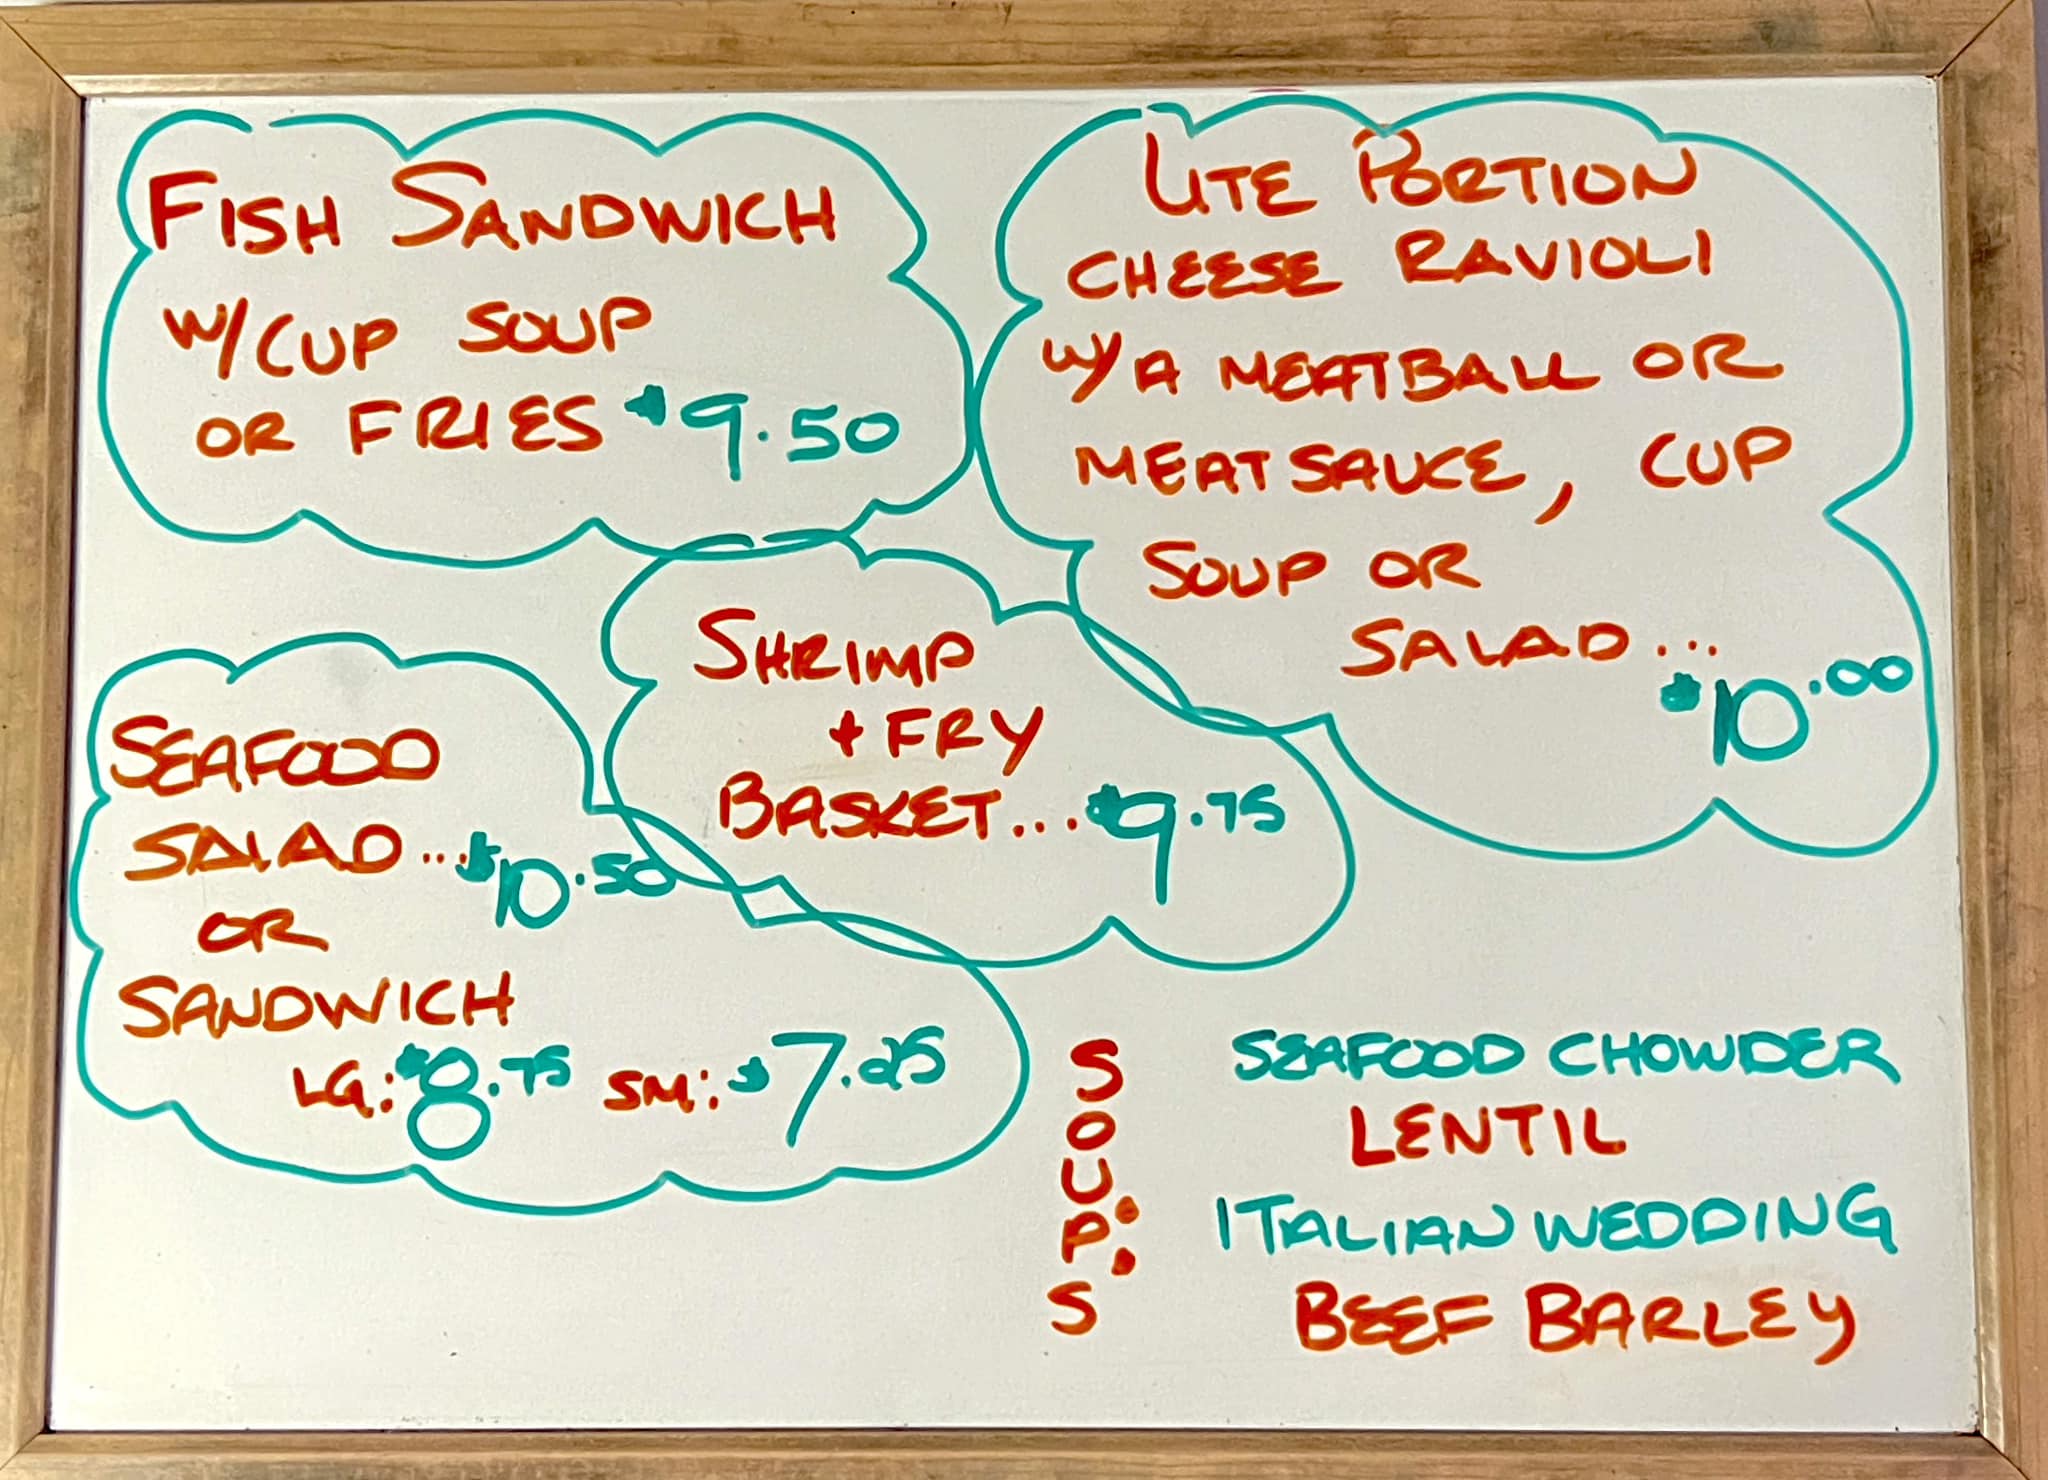 FISH SANDWICH
W/CUP SOUP
OR FRIES $9.50
LITE PORTION
CHEESE RAVIOLI
W/A MEATBALL OR
MEATSAUCE, CUP
SOUP OR
SALAD...
$10.00
SHRIMP
+ FRY
BASKET...$9.75
SEAFOOD
SALAD...$10.50
OR
SANDWICH
LG:$8.75 SM:$7.25
SOUPS:
SEAFOOD CHOWDER
LENTIL
ITALIAN WEDDING
BEEF BARLEY